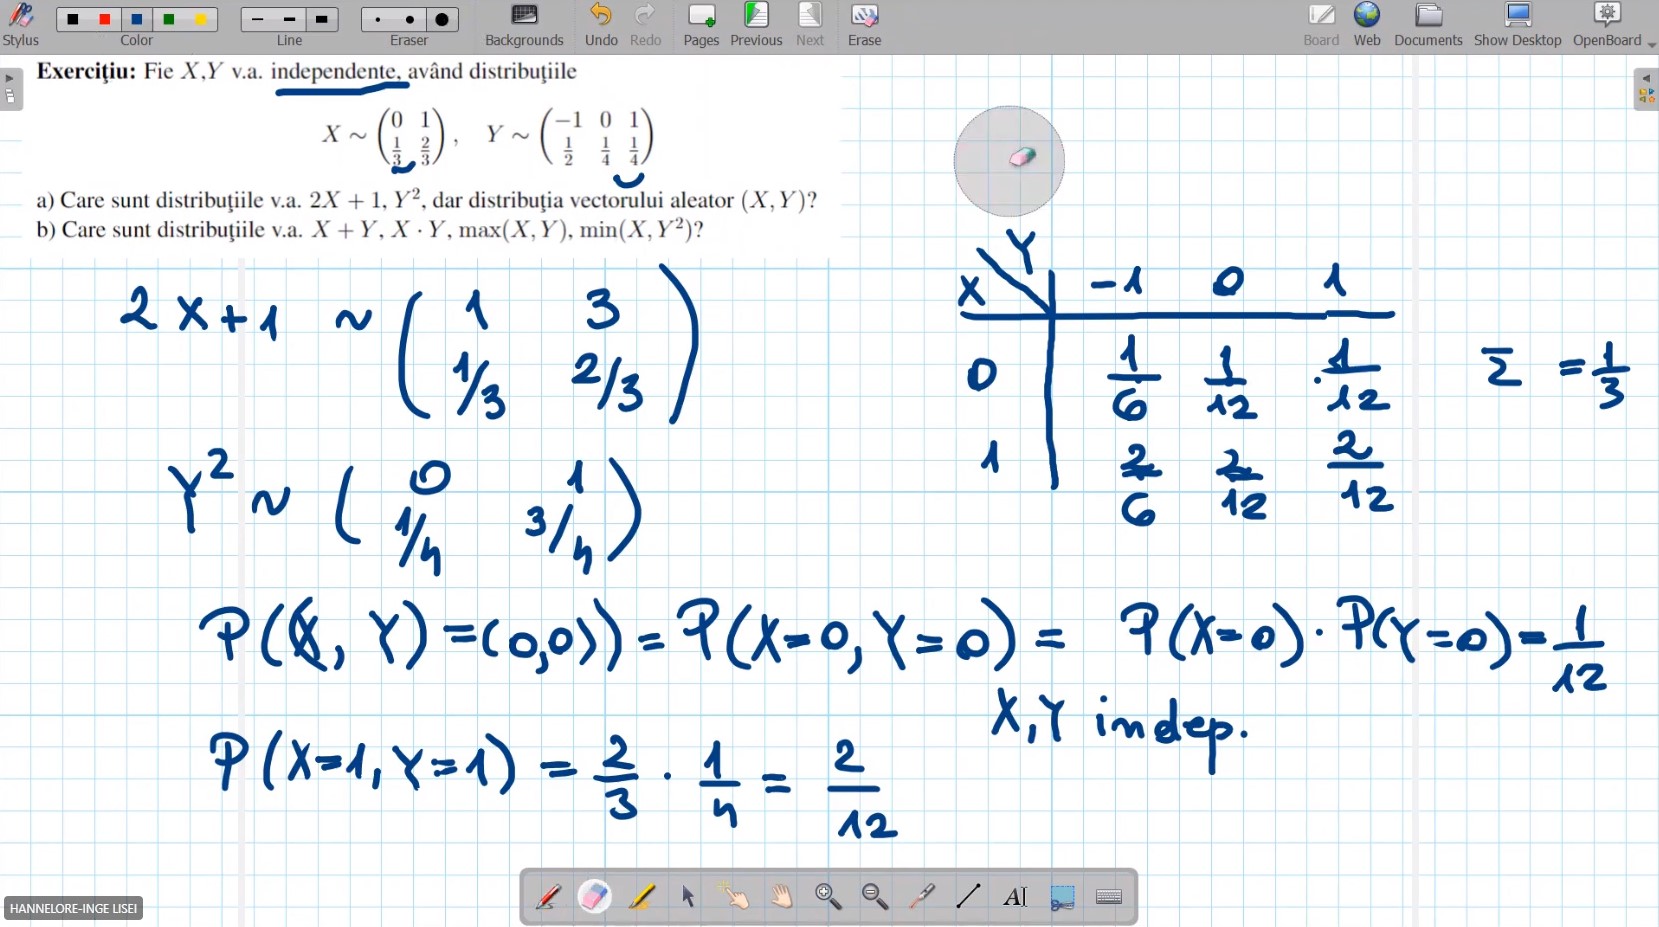 Stylus Color Line Eraser Backgrounds Undo Redo Pages Previous Next Erase Board Web Documents Show Desktop OpenBoard
Exercițiu: Fie X,Y v.a. independente, având distribuțiile
X ~ (0 1 / 1/3 2/3), Y ~ (−1 0 1 / 1/2 1/4 1/4)
a) Care sunt distribuțiile v.a. 2X + 1, Y², dar distribuția vectorului aleator (X,Y)?
b) Care sunt distribuțiile v.a. X + Y, X · Y, max(X,Y), min(X,Y²)?
2X+1 ~ (1 3 / 1/3 2/3)
Y² ~ (0 1 / 1/4 3/4)
X Y -1 0 1
0 1/6 1/12 1/12 Σ = 1/3
1 2/6 2/12 2/12
P(X, Y) = (0,0)) = P(X=0, Y=0) = P(X=0) · P(Y=0) = 1/12
X, Y indep.
P(X=1, Y=1) = 2/3 · 1/4 = 2/12
AI
HANNELORE-INGE LISEI